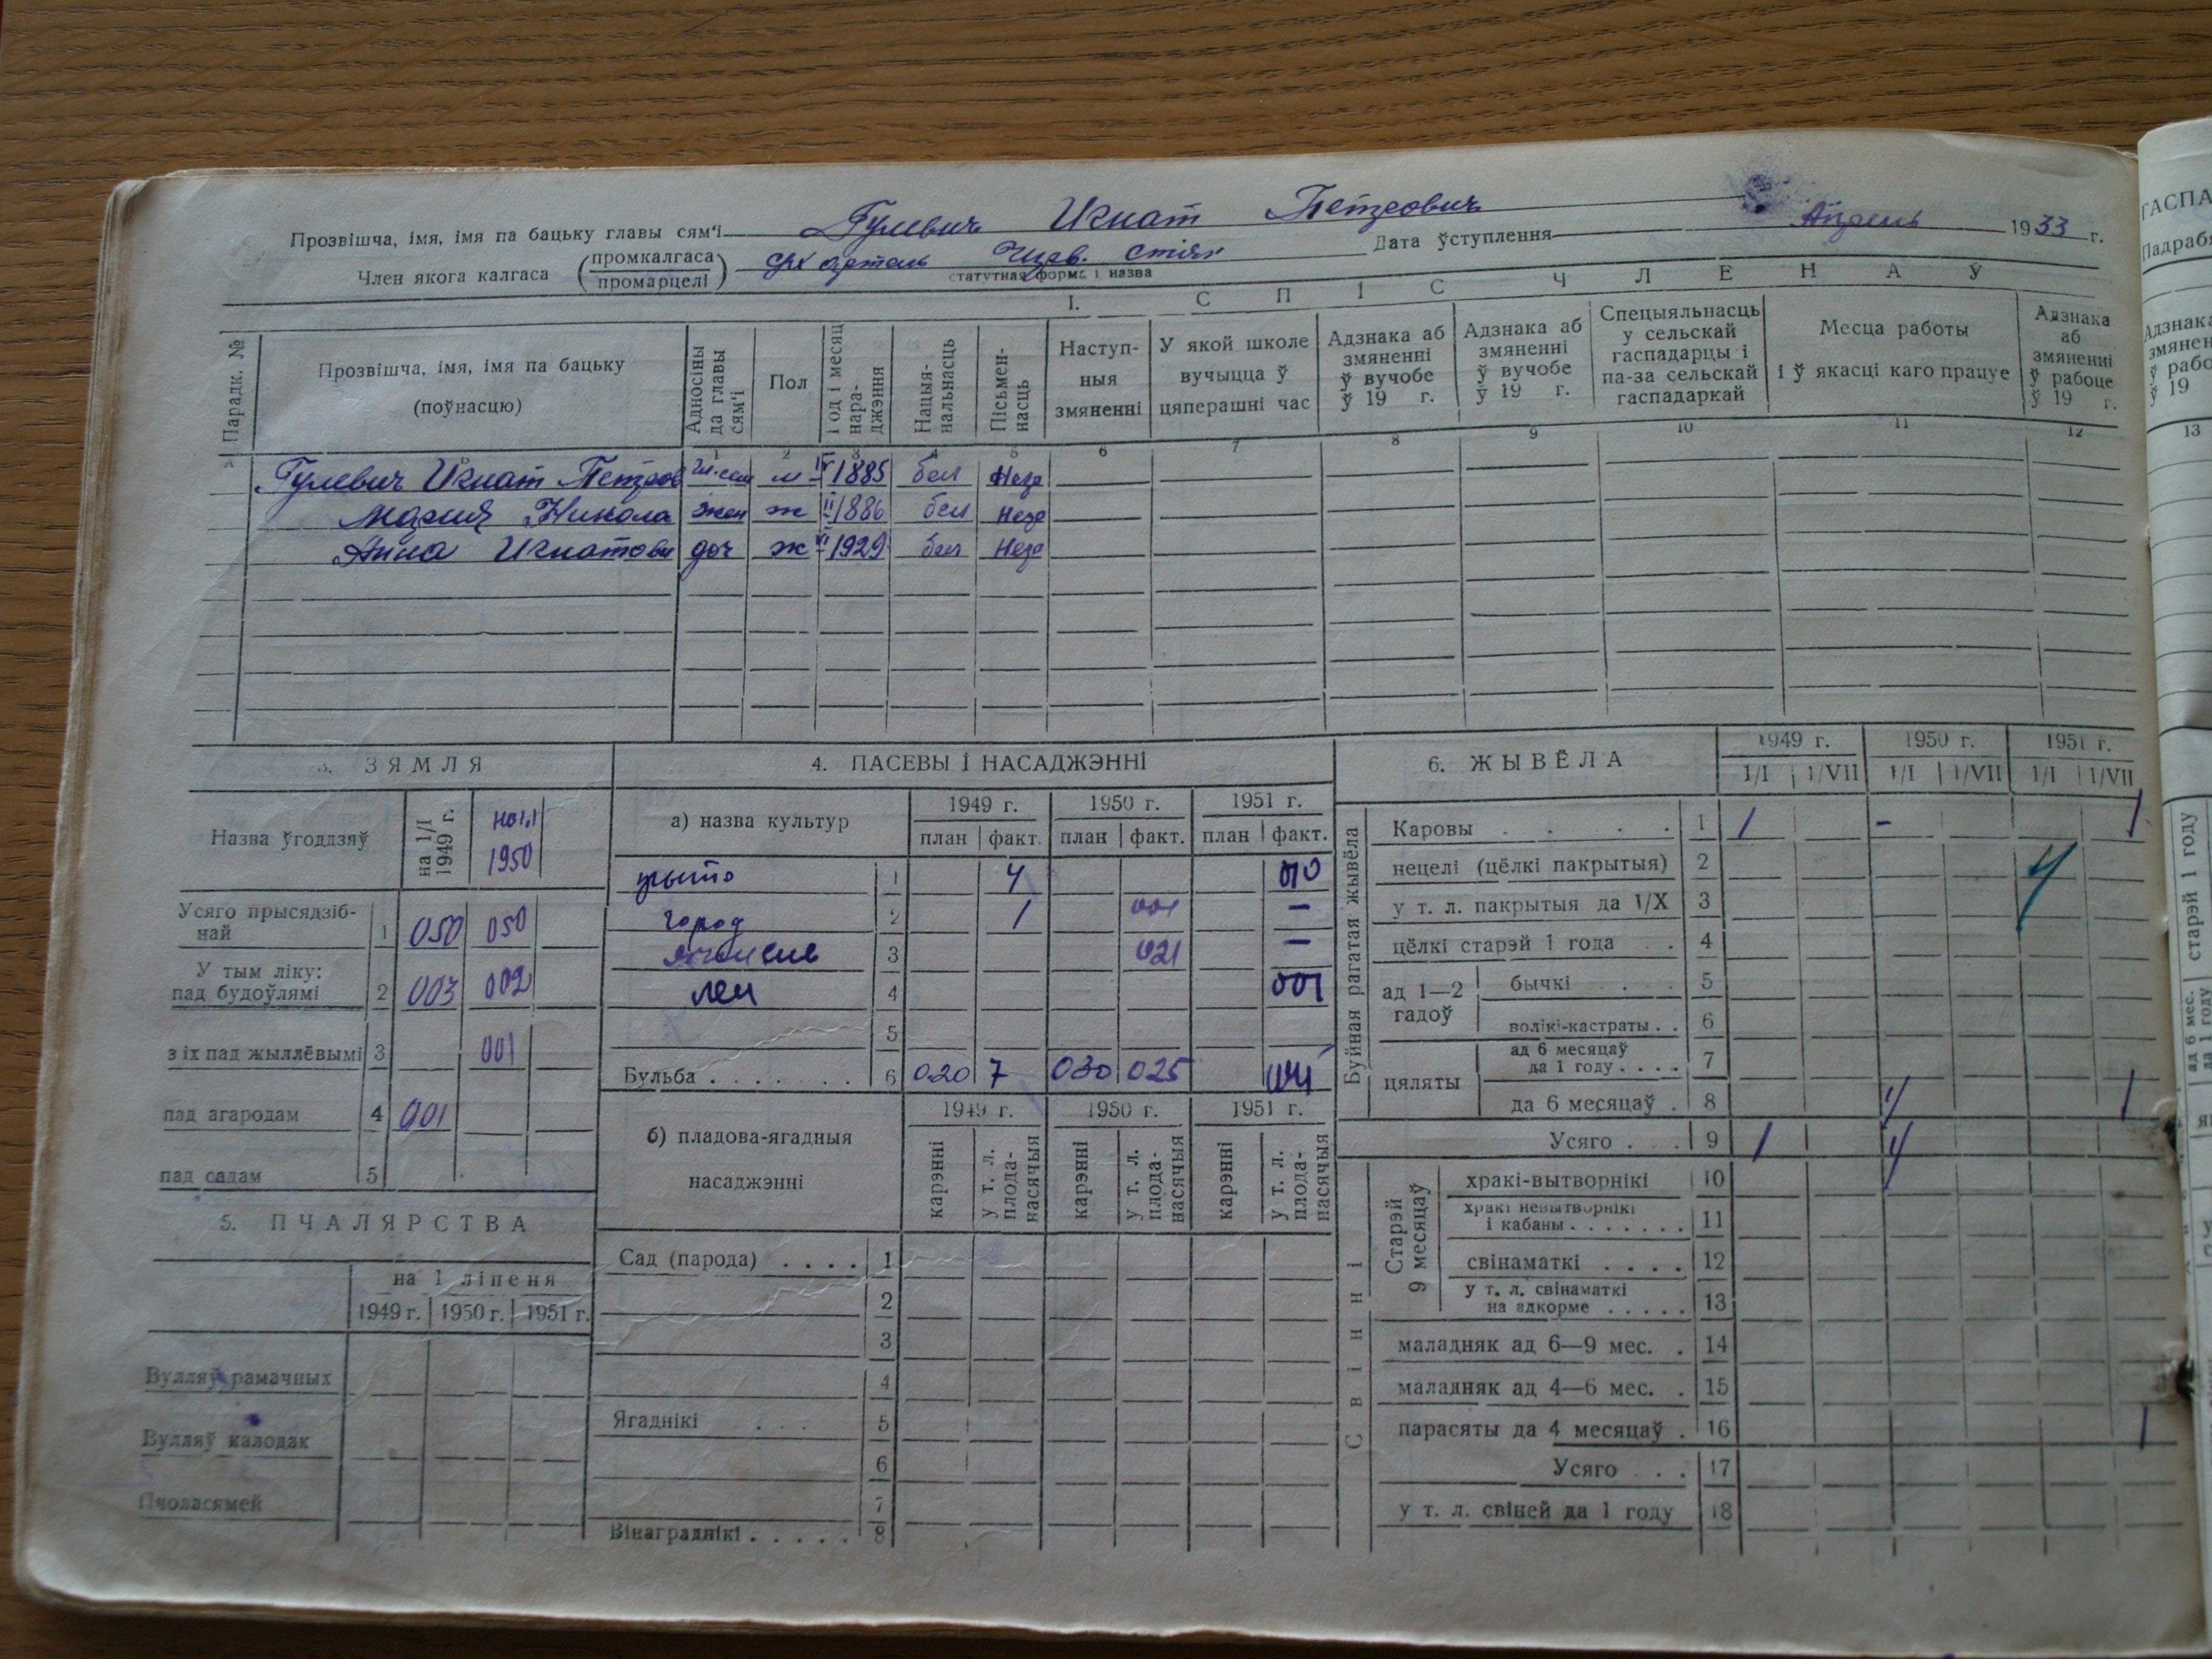 Прозвішча, імя, імя па бацьку главы сям'і Гулевич Игнат Петрович
Дата ўступлення Апрель 1933 г.
Член якога калгаса (промкалгаса / промарцелі) с/х артель
статутная форма і назва
I. СПІС ЧЛЕНАЎ
Парадк. № | Прозвішча, імя, імя па бацьку (поўнасцю) | Адносіны да главы сям'і | Пол | Год і месяц нараджэння | Нацыянальнасць | Пісьменнасць | Наступныя змяненні | У якой школе вучыцца ў цяперашні час | Адзнака аб змяненні ў вучобе ў 19 г. | Адзнака аб змяненні ў вучобе ў 19 г. | Спецыяльнасць у сельскай гаспадарцы і па-за сельскай гаспадаркай | Месца работы і ў якасці каго працуе | Адзнака аб змяненні ў рабоце ў 19 г.
1 2 3 4 5 6 7 8 9 10 11 12 13
Гулевич Игнат Петров м IV 1885 бел Негр
Мария Никола жен ж II 1886 бел Негр
Анна Игнатовн доч ж VI 1929 бел Негр
3. ЗЯМЛЯ
Назва ўгоддзяў | на 1/I 1949 г. | 1950
Усяго прысядзібнай 1 050 050
У тым ліку: пад будоўлямі 2 003 002
з іх пад жыллёвымі 3 001
пад агародам 4 001
пад садам 5
5. ПЧАЛЯРСТВА
на 1 ліпеня
1949 г. 1950 г. 1951 г.
Вулляў рамачных
Вулляў калодак
Пчоласямей
4. ПАСЕВЫ І НАСАДЖЭННІ
а) назва культур | 1949 г. | 1950 г. | 1951 г.
план факт. план факт. план факт.
жыто 1 4 010
город 2 1 001 —
ячмень 3 021 —
лен 4 001
5
Бульба 6 020 7 030 025
б) пладова-ягадныя насаджэнні | 1949 г. | 1950 г. | 1951 г.
карэнні у т. л. плода-насячыя карэнні у т. л. плода-насячыя карэнні у т. л. плода-насячыя
Сад (парода) . . . . 1
2
3
4
Ягаднікі . . . 5
6
7
Вінаграднікі . . . . . 8
6. ЖЫВЁЛА | 1949 г. | 1950 г. | 1951 г.
1/I 1/VII 1/I 1/VII 1/I 1/VII
Буйная рагатая жывёла
Каровы . . . . 1 1 - 1
нецелі (цёлкі пакрытыя) 2
у т. л. пакрытыя да 1/X 3
цёлкі старэй 1 года . . 4
ад 1—2 гадоў
бычкі . . . . 5
волікі-кастраты . . 6
цяляты
ад 6 месяцаў да 1 году . . . . 7
да 6 месяцаў . 8 1
Усяго . . . 9 1
Свінні
Старэй 9 месяцаў
хракі-вытворнікі 10
хракі невытворнікі і кабаны . . . . . . . 11
свінаматкі . . . . 12
у т. л. свінаматкі на адкорме . . . . . 13
маладняк ад 6—9 мес. . 14
маладняк ад 4—6 мес. . 15
парасяты да 4 месяцаў . 16 1
Усяго . . . 17
у т. л. свіней да 1 году 18